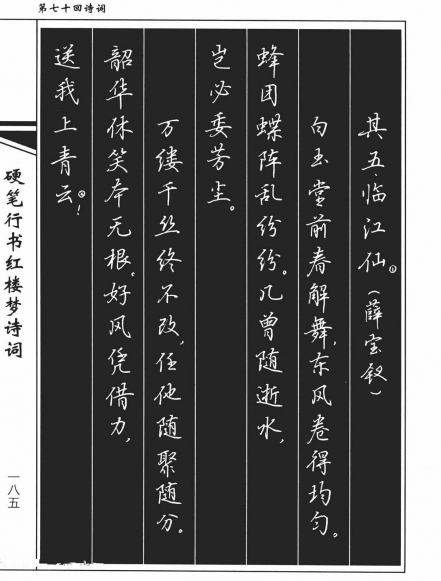 第七十回诗词
其五·临江仙①(薛宝钗)
白玉堂前春解舞,东风卷得均匀。
蜂团蝶阵乱纷纷。几曾随逝水,
岂必委芳尘。
万缕千丝终不改,任他随聚随分。
韶华休笑本无根。好风凭借力,
送我上青云②!
硬笔行书红楼梦诗词
一八五